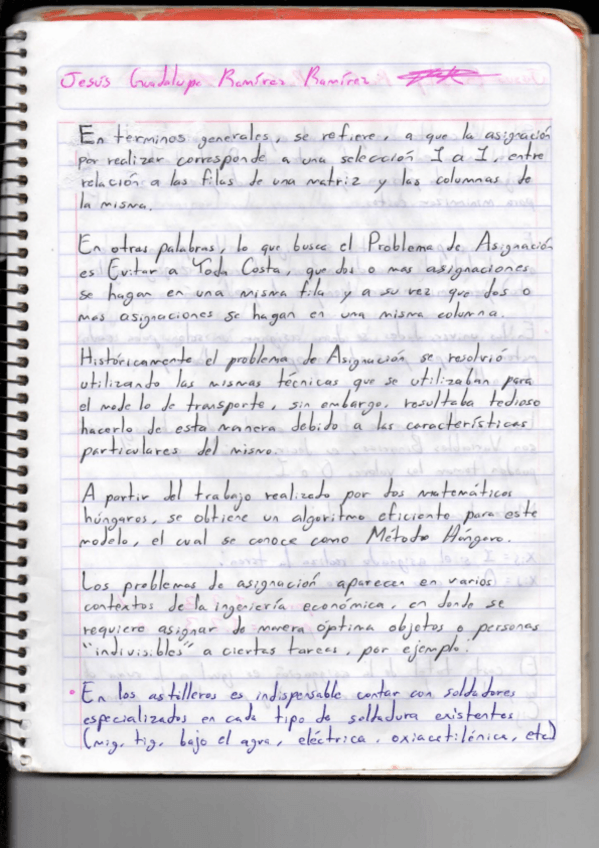 Jesús Guadalupe Ramírez Ramírez
En terminos generales, se refiere, a que la asignación
por realizar corresponde a una selección 1 a 1, entre
relación a las filas de una matriz y las columnas de
la misma.
En otras palabras, lo que busca el Problema de Asignación
es Evitar a Toda Costa, que dos o mas asignaciones
se hagan en una misma fila y a su vez que dos o
mas asignaciones se hagan en una misma columna.
Históricamente el problema de Asignación se resolvió
utilizando las mismas técnicas que se utilizaban para
el modelo de transporte, sin embargo, resultaba tedioso
hacerlo de esta manera debido a las características
particulares del mismo.
A partir del trabajo realizado por dos matemáticos
húngaros, se obtiene un algoritmo eficiente para este
modelo, el cual se conoce como Método Húngaro.
Los problemas de asignación aparecen en varios
contextos de la ingeniería económica, en donde se
requiere asignar de manera óptima objetos o personas
"indivisibles" a ciertas tareas, por ejemplo:
• En los astilleros es indispensable contar con soldadores
especializados en cada tipo de soldadura existentes
(mig, tig, bajo el agua, eléctrica, oxiacetilénica, etc)